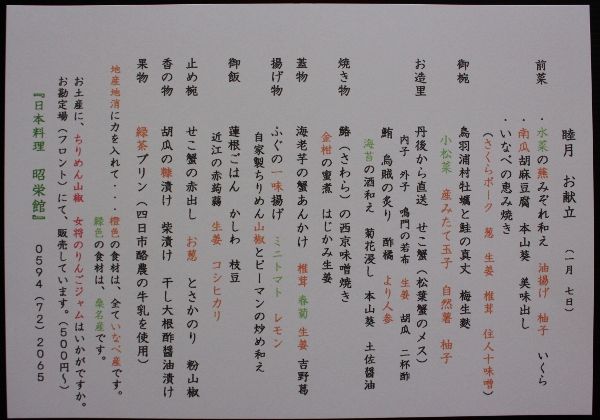 睦月　お献立　（一月　七日）
前菜　・水菜の蕪みぞれ和え　油揚げ　柚子　いくら
・南瓜胡麻豆腐　本山葵　美味出し
・いなべの恵み焼き
（さくらポーク　葱　生姜　椎茸　住人十味噌）
御椀　鳥羽浦村牡蠣と鮭の真丈　梅生麩
小松菜　産みたて玉子　自然薯　柚子
お造里　丹後から直送　せこ蟹（松葉蟹のメス）
内子　外子　鳴門の若布　生姜　胡瓜　二杯酢
鮪　烏賊の炙り　酢橘　より人参
海苔の酒和え　菊花浸し　本山葵　土佐醤油
焼き物　鰆（さわら）の西京味噌焼き
金柑の蜜煮　はじかみ生姜
蓋物　海老芋の蟹あんかけ　椎茸　春菊　生姜　吉野葛
揚げ物　ふぐの一味揚げ　ミニトマト　レモン
自家製ちりめん山椒とピーマンの炒め和え
御飯　蓮根ごはん　かしわ　枝豆
近江の赤蒟蒻　生姜　コシヒカリ
止め椀　せこ蟹の赤出し　お葱　とさかのり　粉山椒
香の物　胡瓜の糠漬け　柴漬け　干し大根酢醤油漬け
果物　緑茶プリン（四日市酪農の牛乳を使用）
地産地消に力を入れて・・・橙色の食材は、全ていなべ産です。
緑色の食材は、桑名産です。
お土産に、ちりめん山椒　女将のりんごジャムはいかがですか。
お勘定場（フロント）にて、販売しています。（５００円～）
『日本料理　昭栄館』　０５９４（７２）２０６５